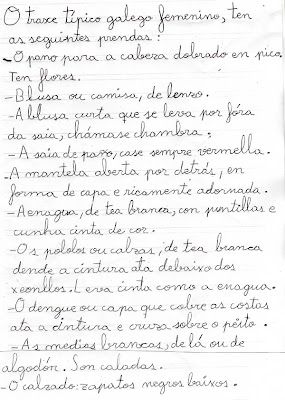 O traxe típico galego femenino, ten
as seguintes prendas:
- O pano para a cabeza dobrado en pico.
Ten flores.
- Blusa ou camisa, de lenzo.
- A blusa curta que se leva por fóra
da saia, chámase chambra;
- A saia de paño, case sempre vermella.
- A mantela aberta por detrás, en
forma de capa e ricamente adornada.
- A enagua, de tea branca, con puntillas e
cunha cinta de cor.
- Os pololos ou calzas, de tea branca
dende a cintura ata debaixo dos
xeonllos. Leva cinta como a enagua.
- O dengue ou capa que cobre as costas
ata a cintura e cruza sobre o peito.
- As medias brancas, de lá ou de
algodón. Son caladas.
- O calzado: zapatos negros baixos.